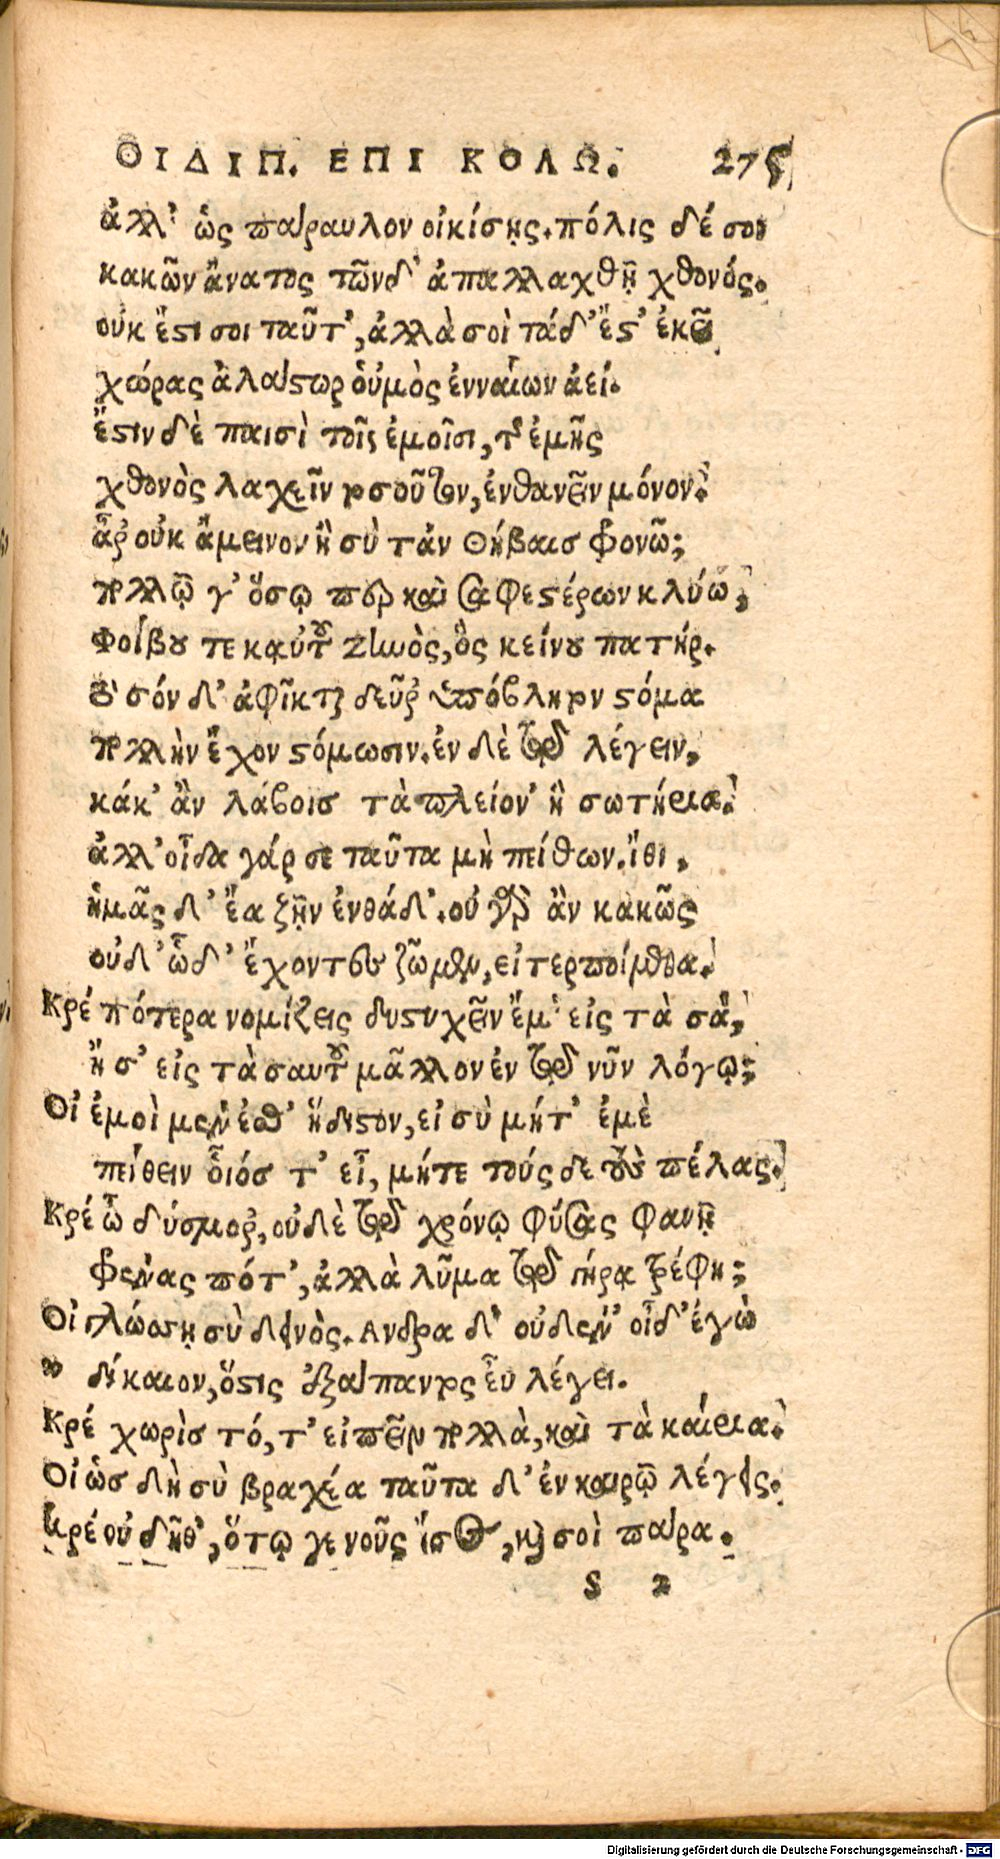 ΟΙΔΙΠ. ΕΠΙ ΚΟΛΩ. 275
ἀλλ' ὡς πάραυλον οἰκίσῃς. πόλις δέ σοι
κακῶν ἄνατος τῶνδ' ἀπαλλαχθῇ χθονός.
οὐκ ἔστι σοι ταῦτ', ἀλλὰ σοὶ τάδ' ἔστ' ἐκεῖ
χώρας ἀλάστωρ οὑμὸς ἐνναίων ἀεί.
ἔστιν δὲ παισὶ τοῖς ἐμοῖσι, τ' ἐμῆς
χθονὸς λαχεῖν τοσοῦτον, ἐνθανεῖν μόνον.
ἆρ οὐκ ἄμεινον ἢ σὺ τἀν Θήβαισ φρονῶ;
πολλῷ γ' ὅσῳ περ καὶ σαφεστέρων κλύω,
Φοίβου τε καὐτοῦ Ζηνὸς, ὃς κείνου πατήρ.
τὸ σόν δ' ἀφῖκται δεῦρ ὑπόβλητον στόμα
πολλὴν ἔχον στόμωσιν. ἐν δὲ τῷ λέγειν,
κάκ' ἂν λάβοις τὰ πλείον' ἢ σωτήρια.
ἀλλ' οἶδα γάρ σε ταῦτα μὴ πείθων. ἴθι,
ἡμᾶς δ' ἔα ζῇν ἐνθάδ'. οὐ γὰρ ἂν κακῶς
οὐδ' ὧδ' ἔχοντες ζῶμεν, εἰ τερποίμεθα.
Κρέ πότερα νομίζεις δυστυχεῖν ἔμ' εἰς τὰ σά,
ἢ σ' εἰς τὰ σαυτοῦ μᾶλλον ἐν τῷ νῦν λόγῳ;
Οἰ ἐμοὶ μέν ἐσθ' ἥδιστον, εἰ σὺ μήτ' ἐμὲ
πείθειν οἷός τ' εἶ, μήτε τούς δε τοὺς πέλας.
Κρέ ὦ δύσμορ, οὐδὲ τῷ χρόνῳ φύσας φανῇ
φρένας πότ', ἀλλὰ λῦμα τῷ γήρᾳ τρέφῃ;
Οἰ γλώσσῃ σὺ δεινὸς. Ἄνδρα δ' οὐδέν' οἶδ' ἐγὼ
δίκαιον, ὅστις ἐξ ἅπαντος εὖ λέγει.
Κρέ χωρὶσ τό, τ' εἰπεῖν πολλὰ, καὶ τὰ καίρια.
Οἰ ὡσ δὴ σὺ βραχέα ταῦτα δ' ἐν καιρῷ λέγεις.
Κρέ οὐ δῆθ', ὅτῳ γε νοῦς ἴσος, καὶ σοὶ πάρα.
S 2
Digitalisierung gefördert durch die Deutsche Forschungsgemeinschaft - DFG